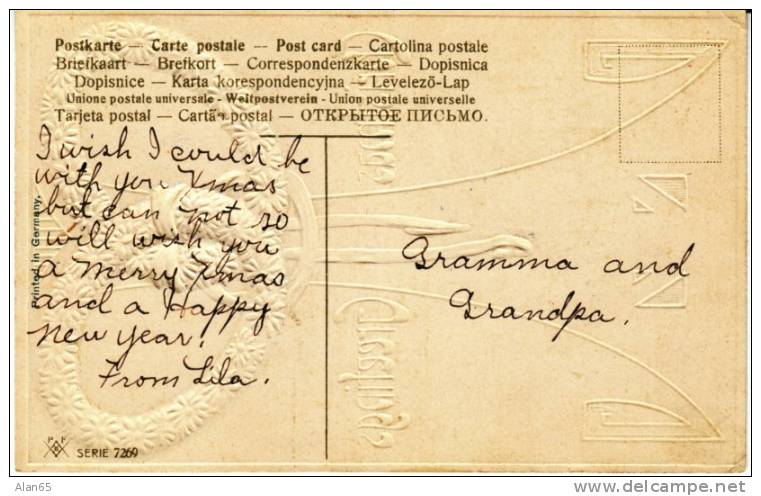 Postkarte — Carte postale — Post card — Cartolina postale
Briefkaart — Brefkort — Correspondenzkarte — Dopisnica
Dopisnice — Karta korespondencyjna — Levelező-Lap
Unione postale universale - Weltpostverein - Union postale universelle
Tarjeta postal — Cartã postal — ОТКРЫТОЕ ПИСЬМО.
I wish I could be
with you Xmas
but can not so
will wish you
a Merry Xmas
and a Happy
New Year.
From Lila.
Gramma and
Grandpa.
Printed in Germany.
SERIE 7269
Alan65
www.delcampe.net